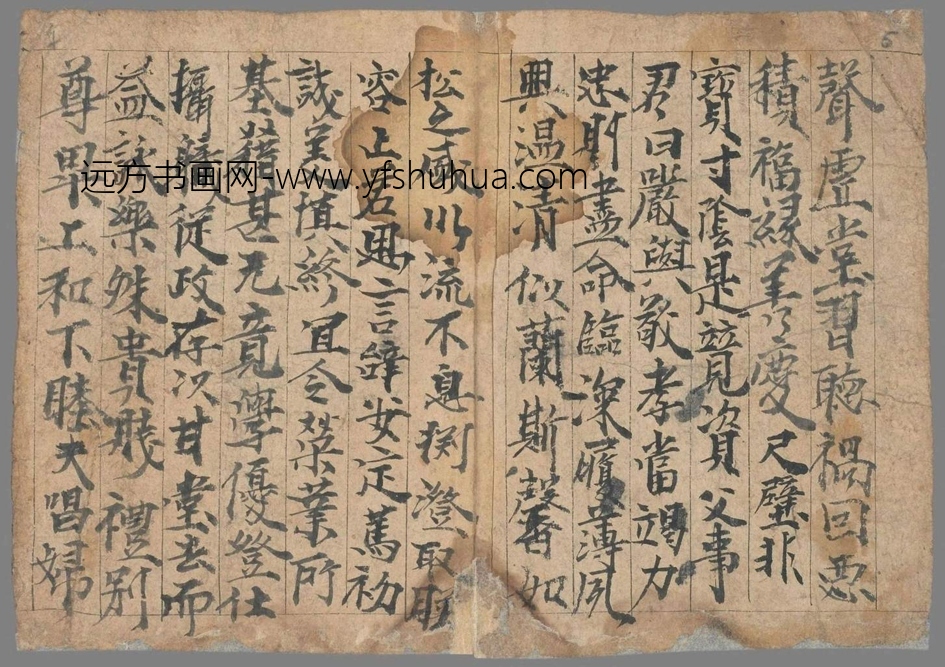 聲虛堂習聽禍因惡
積福緣善之慶尺璧非
寶寸陰是競資父事
君曰嚴與敬孝當竭力
忠則盡命臨深履薄夙
興溫清似蘭斯馨如
松之盛川流不息渕澄取
容止若思言辞安定篤初
誠美慎終宜令榮業所
基籍甚无竟學優登仕
攝職從政存以甘棠去而
益詠樂殊貴賤禮別
尊卑上和下睦夫唱婦
远方书画网-www.yfshuhua.com
5